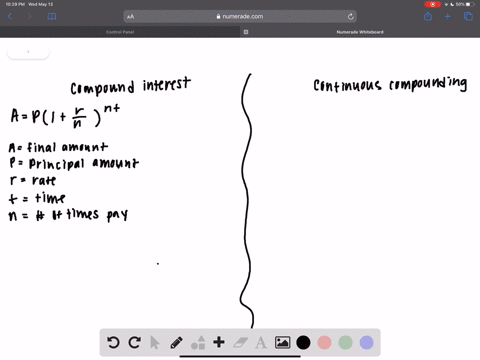 10:39 PM Wed May 13
50%
AA
numerade.com
Control Panel
Numerade Whiteboard
Compound interest
A = P(1 + r/n)^nt
A = final amount
P = Principal amount
r = rate
t = time
n = # of times pay
Continuous compounding
A